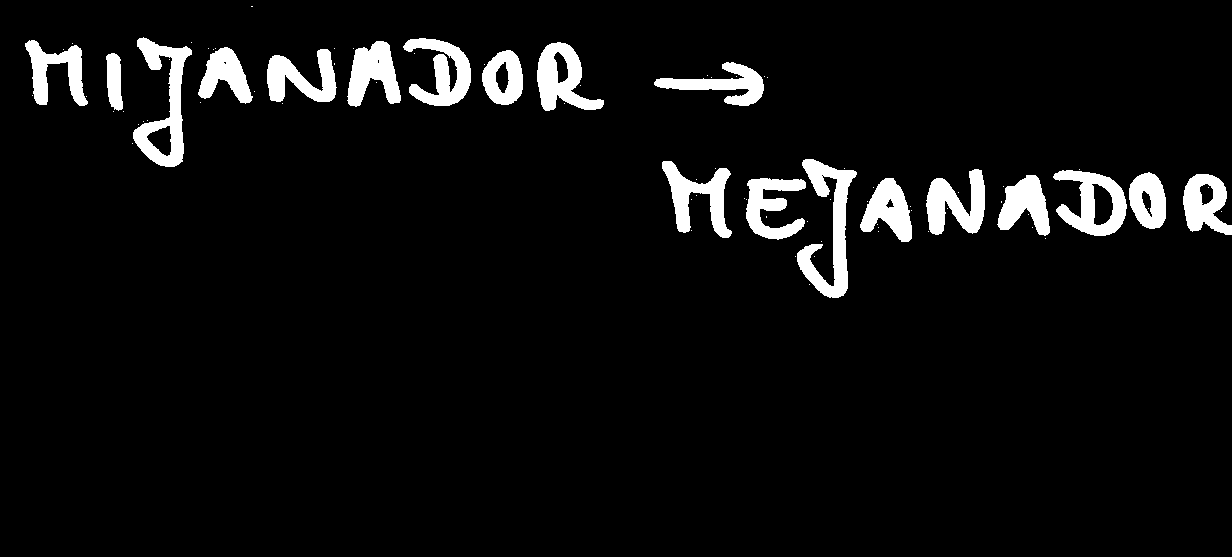 MIJANADOR →
MEJANADOR